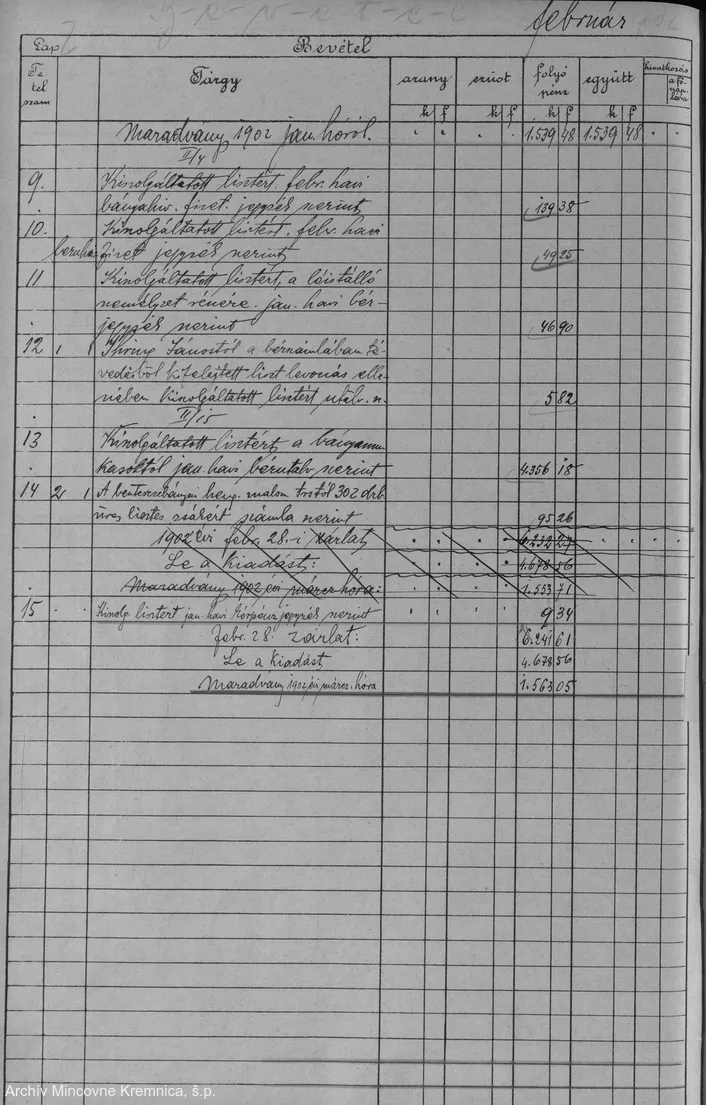 február
Lap
Bevétel
Tétel szám
Tárgy
arany
ezüst
folyó pénz
együtt
hivatkozás a fő naplóra
k f k f k f k f
Maradvány 1902 jan. hóról. 1.539 48 1.539 48
II/4
9. Kiszolgáltatott lisztért. febr. havi
bányahiv. fizet. jegyzék szerint 139 38
10. Kiszolgáltatott lisztért. febr. havi
fizet jegyzék szerint 49 25
11 Kiszolgáltatott lisztért, a lóistálló
személyzet részére. jan. havi bér-
jegyzék szerint 46 90
12 1 1 Jánostól a bérszámlában té-
vedésből kifelejtett liszt levonás elle-
nében kiszolgáltatott lisztért utalv. sz. 5 82
II/15
13 Kiszolgáltatott lisztért a bányamun-
kásoktól jan. havi bérutalv szerint 4.356 18
14 2 1 A beszterczebányai heng. malom tsztól 302 drb.
üres lisztes zsákért számla szerint 95 26
1902 évi febr. 28.-i zárlat 6.232 27
Le a Kiadást: 4.678 56
Maradvány 1902 évi márcz hóra: 1.553 71
15 Kiszolg. lisztért jan. havi kórpénz jegyzék szerint 9 34
febr. 28. zárlat: 6.241 61
Le a Kiadást 4.678 56
Maradvány 1902 évi márcz. hóra 1.563 05
Archív Mincovne Kremnica, š.p.